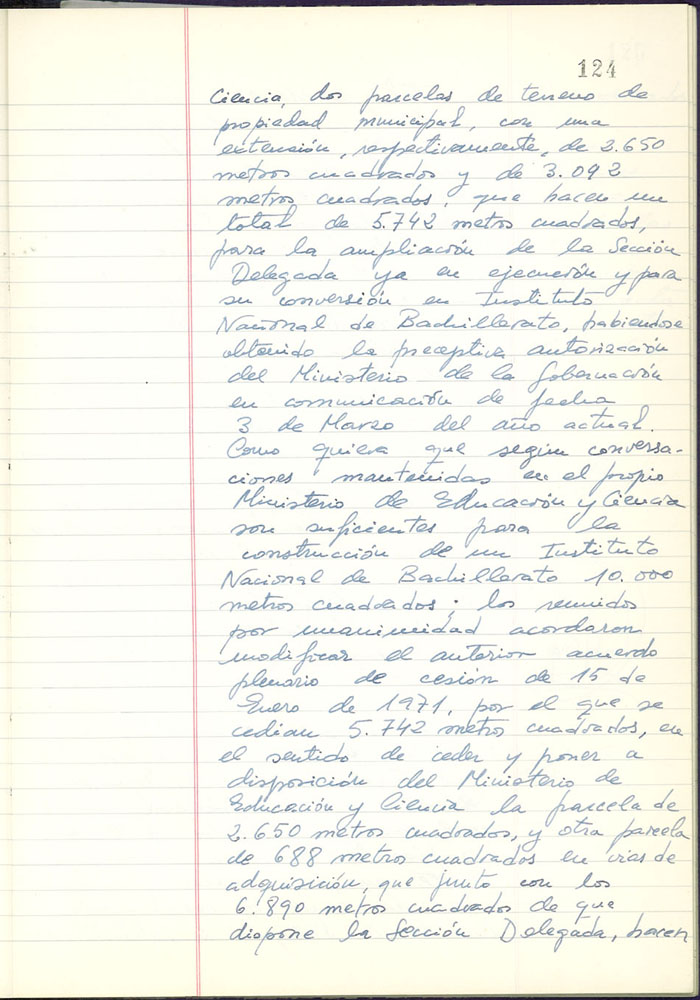 124
Ciencia, dos parcelas de terreno de
propiedad municipal, con una
extensión, respectivamente, de 2.650
metros cuadrados y de 3.092
metros cuadrados, que hacen un
total de 5.742 metros cuadrados,
para la ampliación de la Sección
Delegada ya en ejecución y para
su conversión en Instituto
Nacional de Bachillerato, habiendose
obtenido la preceptiva autorización
del Ministerio de la Gobernación
en comunicación de fecha
3 de Marzo del año actual.
Como quiera que según conversa-
ciones mantenidas en el propio
Ministerio de Educación y Ciencia
son suficientes para la
construcción de un Instituto
Nacional de Bachillerato 10.000
metros cuadrados; los reunidos
por unanimidad acordaron
modificar el anterior acuerdo
plenario de cesión de 15 de
Enero de 1971, por el que se
cedian 5.742 metros cuadrados, en
el sentido de ceder y poner a
disposición del Ministerio de
Educación y Ciencia la parcela de
2.650 metros cuadrados, y otra parcela
de 688 metros cuadrados en vias de
adquisición, que junto con los
6.890 metros cuadrados de que
dispone la Sección Delegada, hacen